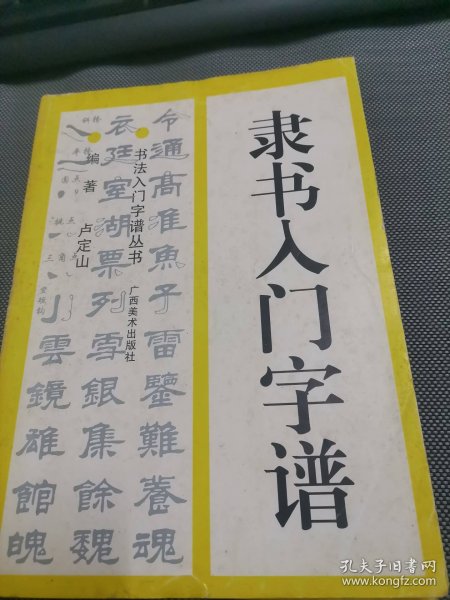 隶书入门字谱
书法入门字谱丛书
广西美术出版社
编著 卢定山
令通高准鱼子雷鑒難養魂
衣廷室湖票列雪銀集餘魏
雲鏡雄館魄
孔夫子旧书网
www.kongfz.com